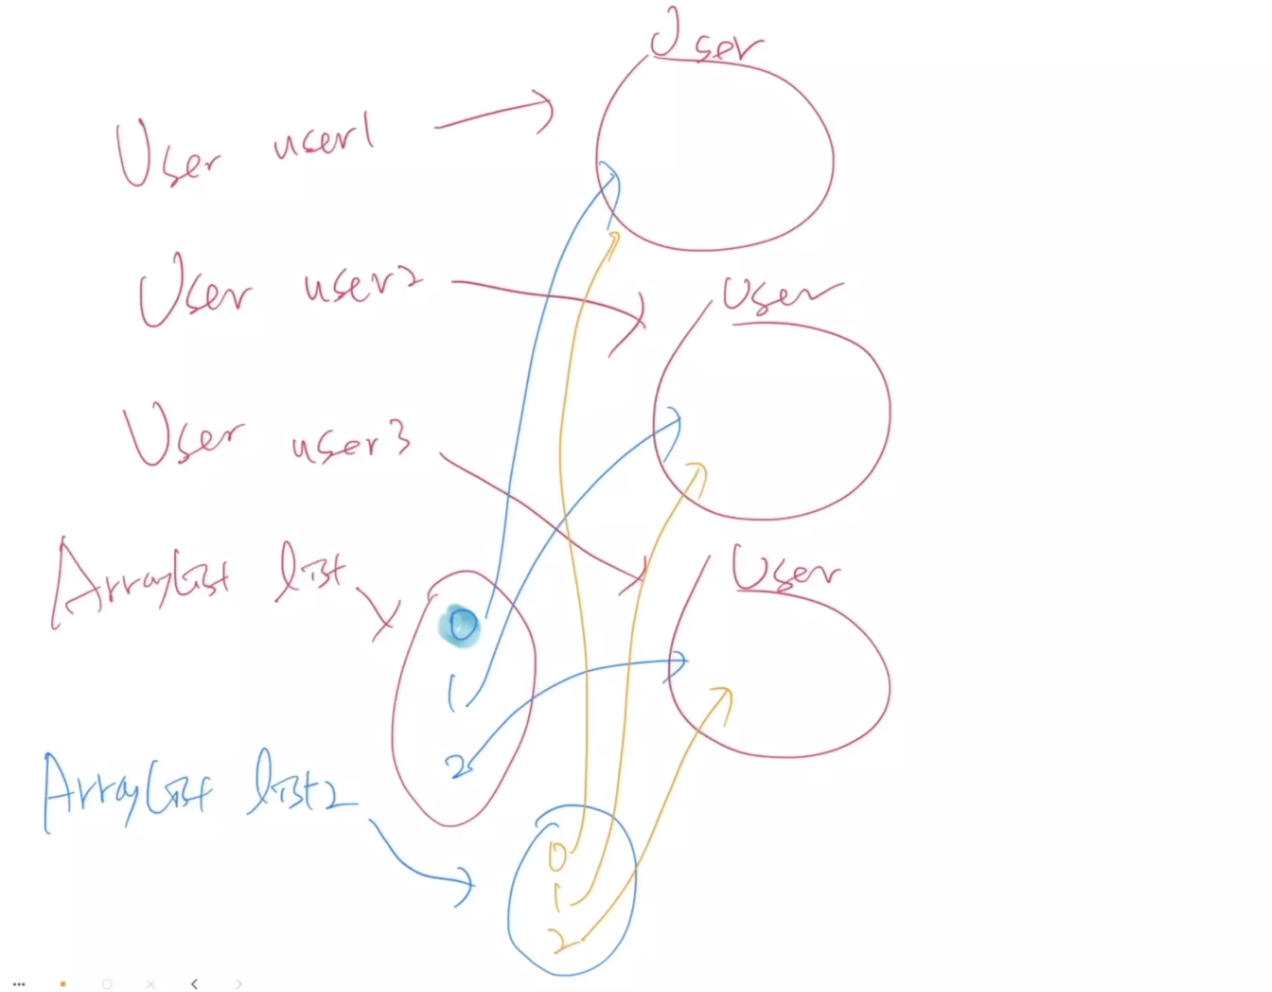 User
User user1
User user2
User
User user3
ArrayList list
User
0
1
2
ArrayList list2
0
1
2